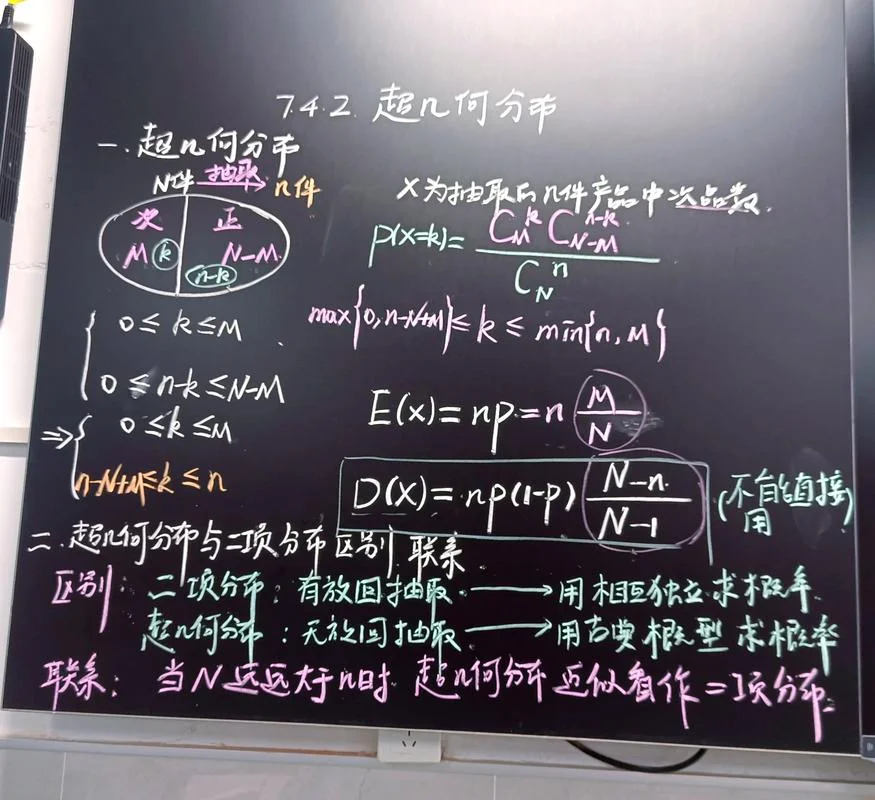 7.4.2. 超几何分布
一.超几何分布
N件 抽取→ n件
次 正
M k N-M
n-k
X为抽取后n件产品中次品数.
P(X=k)= C_M^k C_{N-M}^{n-k} / C_N^n
{ 0≤k≤M
0≤n-k≤N-M
max{0,n-N+M}≤k≤min{n,M}
⇒{ 0≤k≤M
n-N+M≤k≤n
E(X)=np=n M/N
D(X)=np(1-p) N-n/N-1 (不能直接用)
二.超几何分布与二项分布区别 联系
区别: 二项分布:有放回抽取 ⟶ 用相互独立求概率.
超几何分布:无放回抽取 ⟶ 用古典概型求概率
联系: 当N远远大于n时 超几何分布近似看作二项分布.